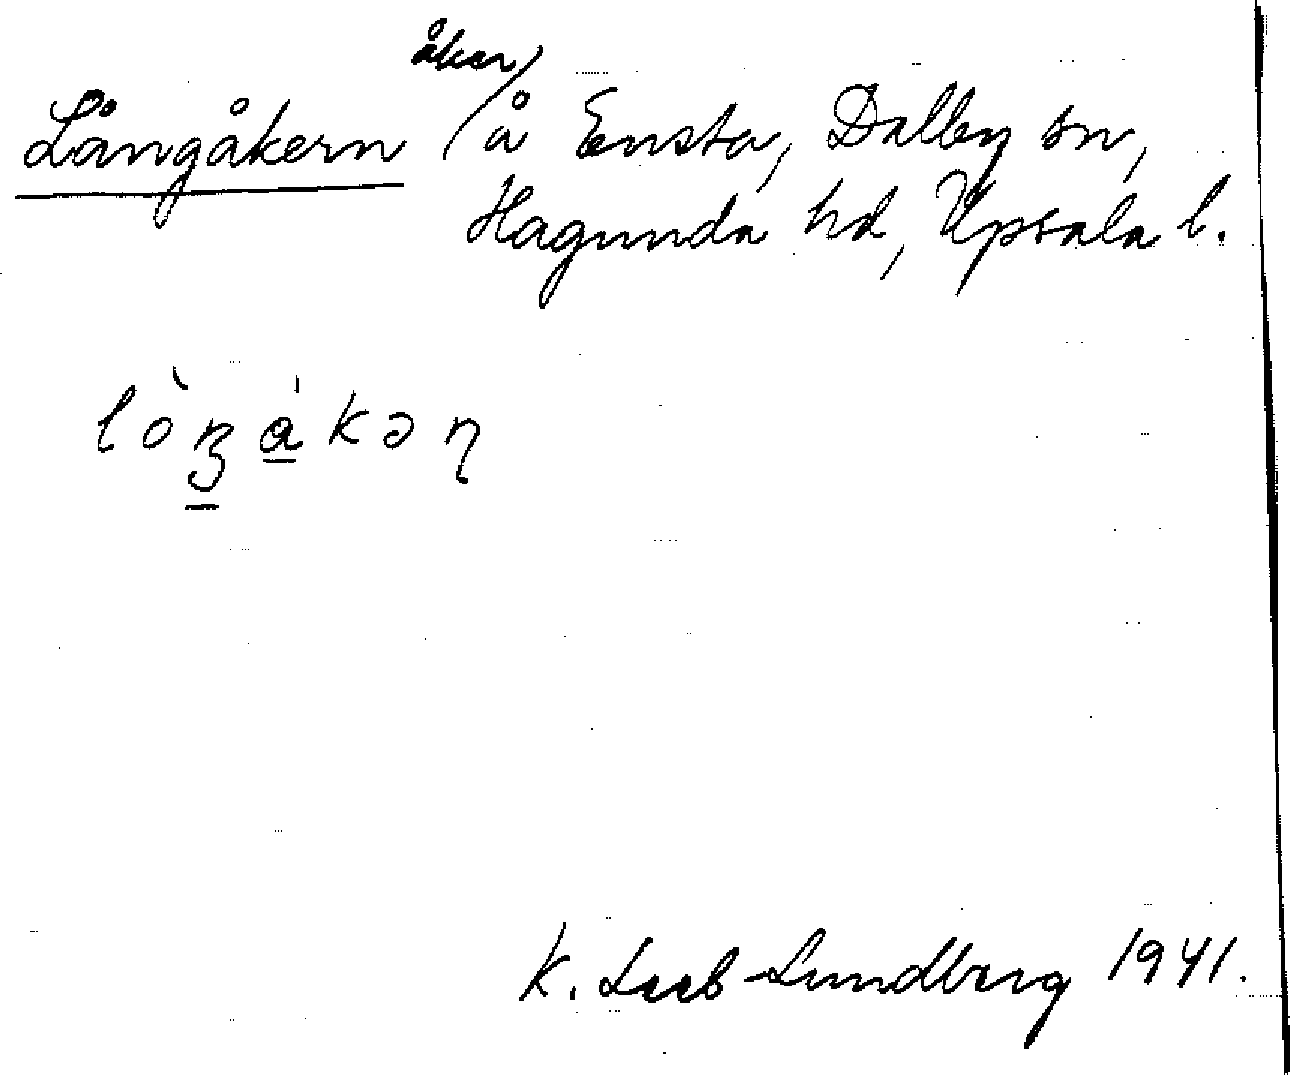 åker
Långåkern / å Ensta, Dalby sn,
Hagunda hd, Upsala l.
lòᶇákəɳ
K. Leeb-Lundberg 1941.